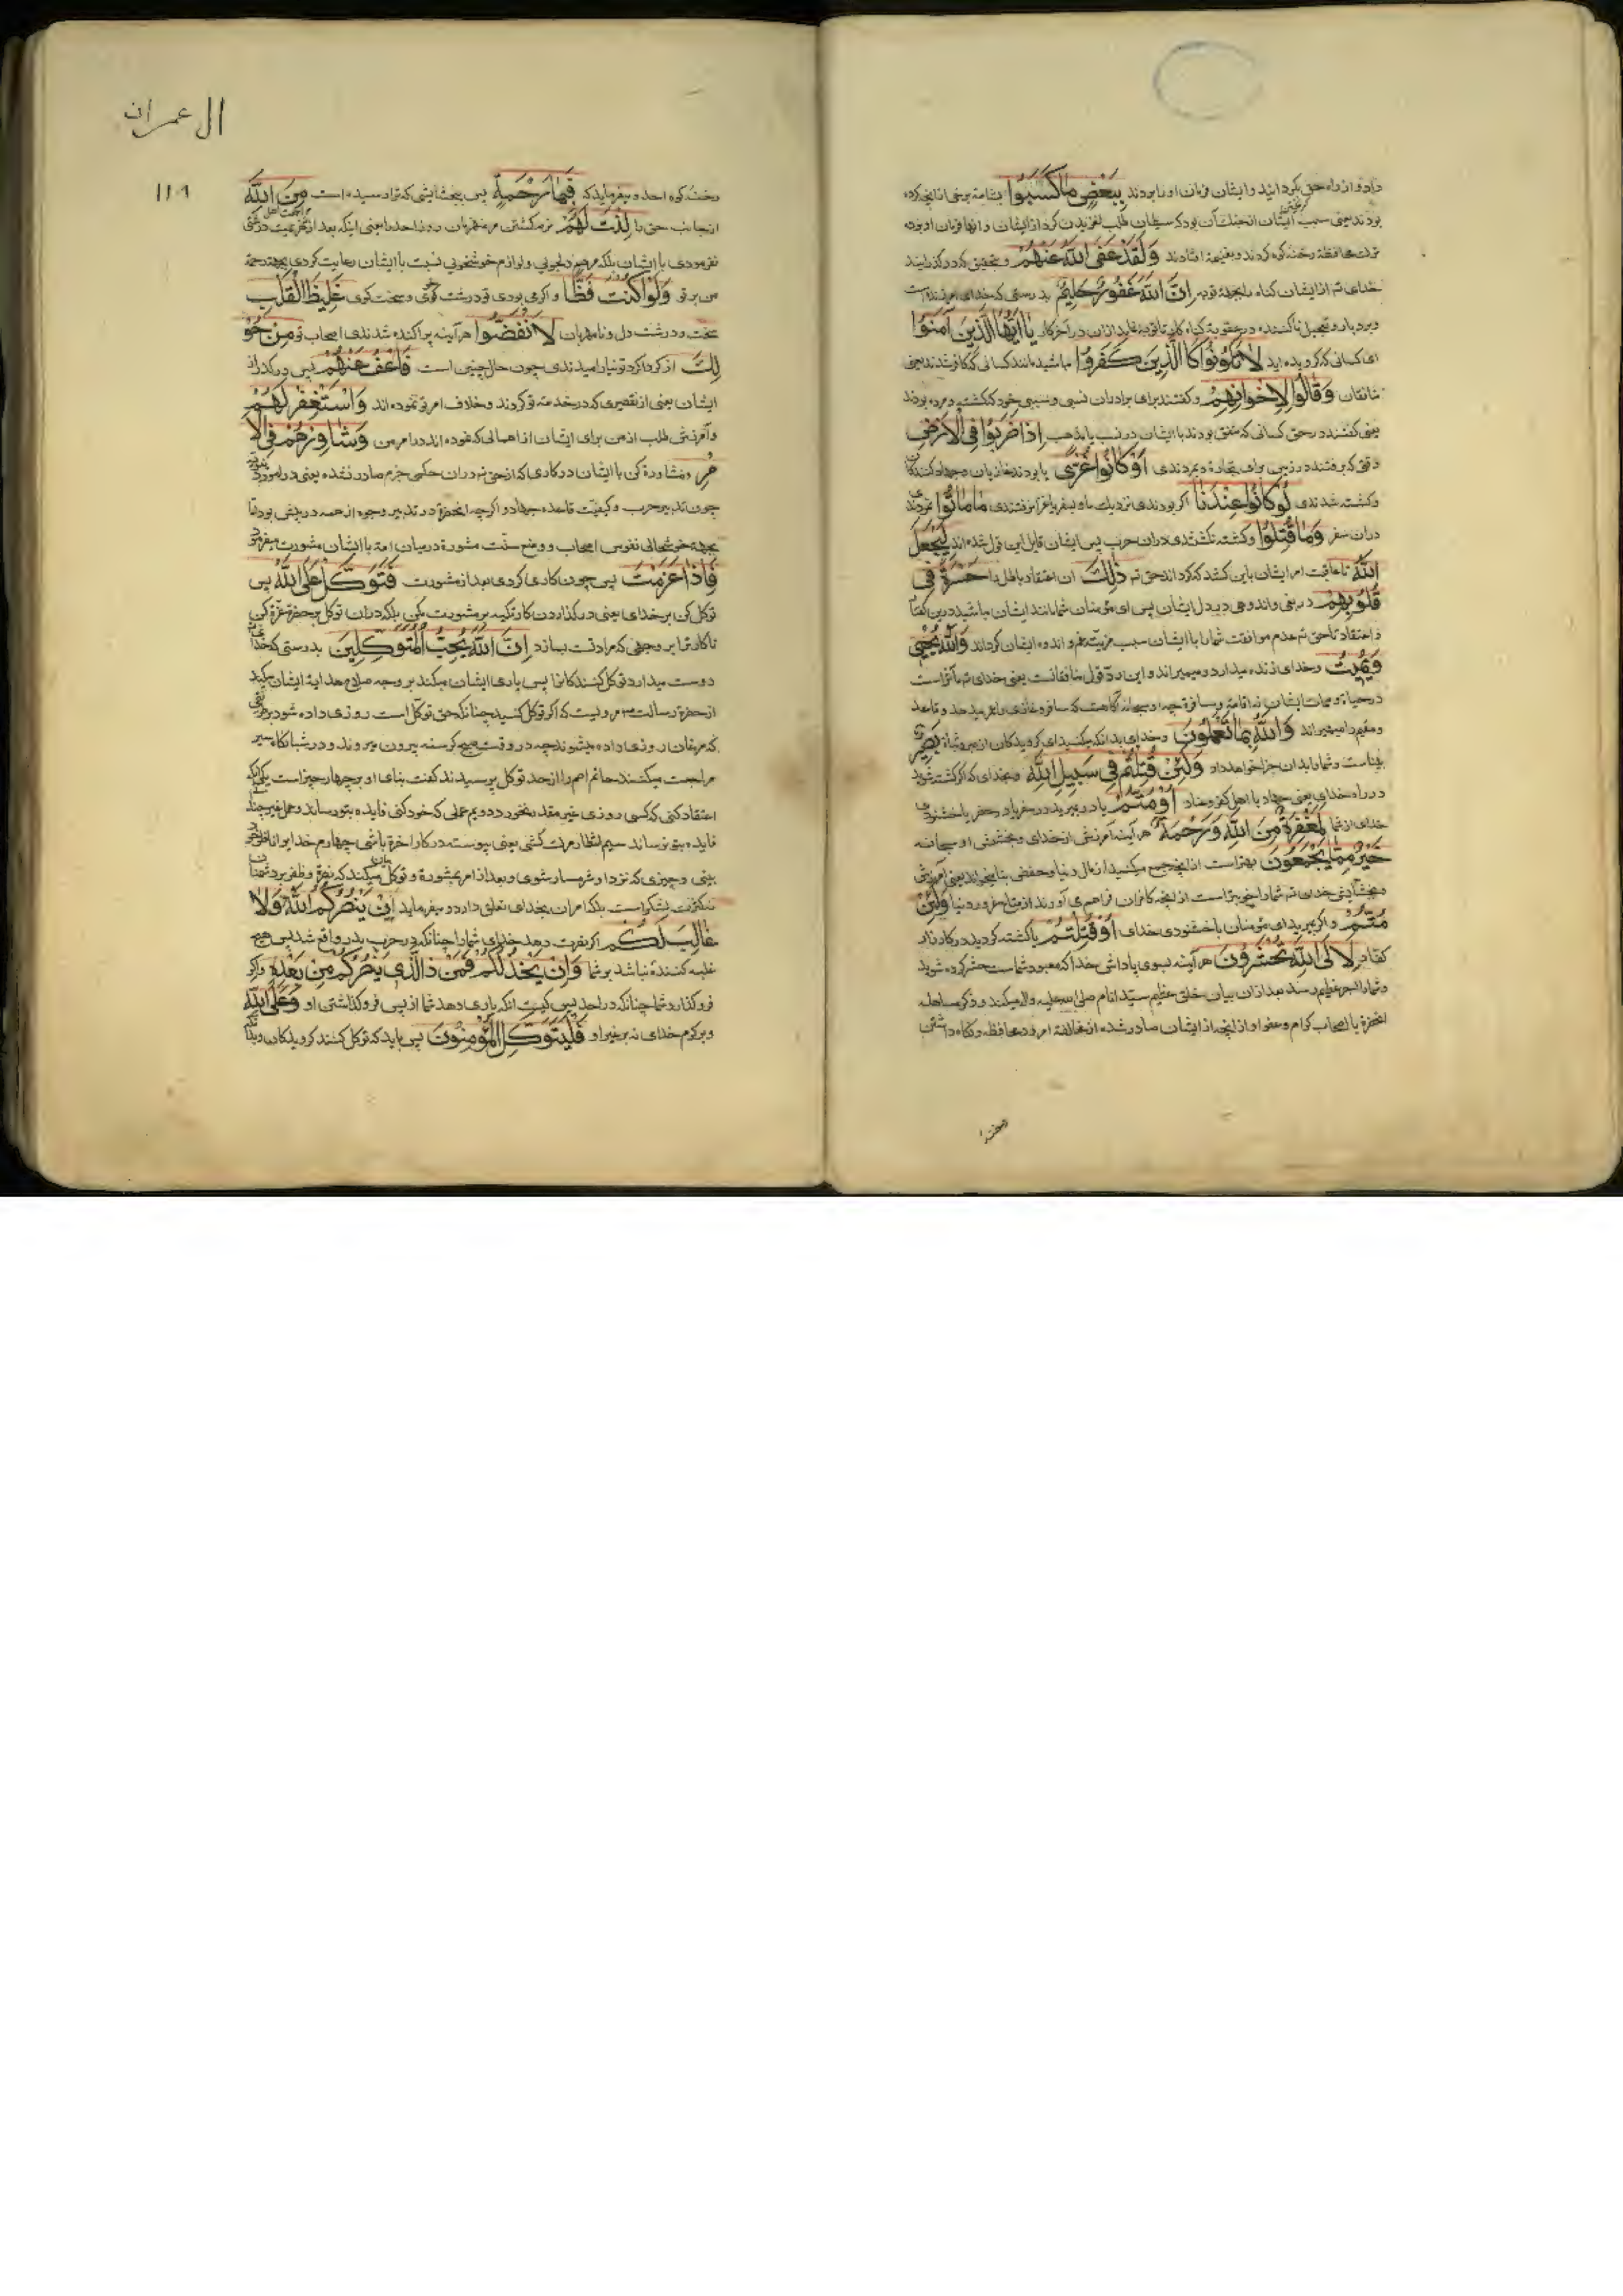 داد و از راه حق بگردانید و ایشان فرمان او بردند بِبَعْضِ مَا كَسَبُوا بشامة برخی از آنچه کرده
بودند یعنی سبب ایشان از جنك آن بود که شیطان طلب لغزیدن کرد از ایشان و آنها فرمان او بوده
ترك محافظه رخنه کوه کردند و بغنیمة افتادند وَلَقَدْ عَفَى اللّٰهُ عَنْهُمْ و بتحقیق که در گذرانید
خدای تع از ایشان گناه بجهة توبه اِنَّ اللّٰهَ غَفُورٌ حَلِيمٌ بدرستی که خدای آمرزنده است
و بردبار و تعجیل ناکننده در عقوبة گناه کار تا توبه نماید از آن در آخر کار يَا اَيُّهَا الَّذِينَ اٰمَنُوا
ای کسانی که گرویده اید لَا تَكُونُوا كَالَّذِينَ كَفَرُوا مباشید مانند کسانی که کافر شدند یعنی
منافقان وَقَالُوا لِاِخْوَانِهِمْ و گفتند برای برادران نسبی و سببی خود که کشته و مرده بودند
یعنی گفتند در حق کسانی که متفق بودند با ایشان در نسب یا مذهب اِذَا ضَرَبُوا فِي الْاَرْضِ
وقتی که برفتند در زمین برای تجارة و بمردندی اَوْ كَانُوا غُزًّى یا بودند غازیان و جهاد کنندگان
و کشته شدندی لَوْ كَانُوا عِنْدَنَا اگر بودندی نزدیك ما و بسفر یا غزا نرفتندی مَا مَاتُوا نمردند
در آن سفر وَمَا قُتِلُوا و کشته نگشتندی در آن حرب پس ایشان قایل این قول شده اند لِيَجْعَلَ
اللّٰهُ تا عاقبت امر ایشان باین کشد که گرداند حق تع ذٰلِكَ آن اعتقاد باطل را حَسْرَةً فِي
قُلُوبِهِمْ دریغی و اندوهی در دل ایشان پس ای مؤمنان شما مانند ایشان مباشید در این گفتار
و اعتقاد تا حق تع عدم موافقت شما را با ایشان سبب مزیت غم و اندوه ایشان گرداند وَاللّٰهُ يُحْيِي
وَيُمِيتُ و خدای زنده میدارد و میمیراند و این رد قول منافقانست یعنی خدای تع مأثر است
در حیاة و ممات ایشان نه اقامة و مسافرة چه او سبحانه گاهست که مسافر و غازی را عمر میدهد و قاعد
و مقیم را میمیراند وَاللّٰهُ بِمَا تَعْمَلُونَ و خدای بدانکه میکنید ای گرویدگان از صبر و ثبات بَصِيرٌ
بیناست و شما را بدان جزا خواهد داد وَلَئِنْ قُتِلْتُمْ فِي سَبِيلِ اللّٰهِ و بخدای که اگر کشته شوید
در راه خدای یعنی جهاد با اهل کفر و عناد اَوْ مُتُّمْ یا در بمیرید در سفر یا در حضر با خشنودی
خدای از شما لَمَغْفِرَةٌ مِنَ اللّٰهِ وَرَحْمَةٌ هر آینه آمرزش از خدای و بخشش او سبحانه
خَيْرٌ مِمَّا يَجْمَعُونَ بهتر است از آنچه جمع میکنید از مال دنیا
و بخشایش خدای تع شما را بهتر است از آنچه کافران فراهم می آورند از متاع دنیا وَلَئِنْ
مُتُّمْ و اگر بمیرید ای مؤمنان با خشنودی خدای اَوْ قُتِلْتُمْ یا کشته گردید در کارزار
کفار لَاِلَى اللّٰهِ تُحْشَرُونَ هر آینه بسوی پاداش خدا که معبود شماست حشر کرده شوید
و شما را اجر عظیم رسد بعد از آن بیان خلق عظیم سید انام صلی الله علیه و آله میکند و ذکر مساهله
آنحضرة با اصحاب کرام و عفو او از آنچه از ایشان صادر شده از مخالفة امر در محافظه و نگاه داشتن
رخنه
ال عمران
١١٩
رخنه کوه احد و میفرماید که فَبِمَا رَحْمَةٍ پس ببخشایشی که ترا رسیده است مِنَ اللّٰهِ
از جانب حق تع لِنْتَ لَهُمْ نرم گشتی مر مهربان روز احد را یعنی اینکه بعد از هزیمت درشتی
نفرمودی با ایشان بلکه مراسم دلجویی و لوازم خوشخویی نسبت با ایشان رعایت کردی بجهة رحمة
من بر تو وَلَوْ كُنْتَ فَظًّا و اگر می بودی تو درشت خوی و سخت گوی غَلِيظَ الْقَلْبِ
سخت و درشت دل و نامهربان لَانْفَضُّوا هر آینه پراکنده شدندی اصحاب تو مِنْ حَوْ
لِكَ از گرداگرد تو نیارامیدندی چون حال چنین است فَاعْفُ عَنْهُمْ پس در گذر از
ایشان یعنی از تقصیری که در خدمة تو کردند و خلاف امر تو نموده اند وَاسْتَغْفِرْ لَهُمْ
و آمرزش طلب از من برای ایشان از اهمالی که نموده اند در امر من وَشَاوِرْهُمْ فِي الْاَ
مْرِ و مشاوره کن با ایشان در کاری که از حق تع در آن حکمی جزم صادر نشده یعنی در امور
چون تدبیر حرب و کیفیت قاعده جهاد و اگر چه آنحضرة در تدبیر وجوه از همه در پیش بود اما
بجهة خوشحالی نفوس اصحاب و وضع سنت مشورة در میان امة با ایشان مشورت میفرمود
فَاِذَا عَزَمْتَ پس چون کاری کردی بعد از مشورت فَتَوَكَّلْ عَلَى اللّٰهِ پس
توکل کن بر خدای یعنی در گذاردن کار تکیه بر مشورت مکن بلکه در آن توکل بر حضرة عزة کن
تا کار ترا بر وجهی که مراد تست بسازد اِنَّ اللّٰهَ يُحِبُّ الْمُتَوَكِّلِينَ بدرستی که خدای
دوست میدارد توکل کنندگانرا پس یاری ایشان میکند بر وجه صلاح و هدایة ایشان میکند
از حضرة رسالت مرویست که اگر توکل کنید چنانکه حق توکل است روزی داده شوید
که مرغان روزی داده میشوند چه در وقت صبح گرسنه بیرون میروند و در شبانگاه سیر
مراجعت میکنند حاتم اصم را از حد توکل پرسیدند گفت بنای او بر چهار چیز است یکی آنکه
اعتقاد کنی که کسی روزی غیر مقدر نخورد دویم عملی که خود کنی فایده بتو رساند و عمل غیر
فایده بتو نرساند سیم انتظار مرك کشی یعنی پیوسته در کار اخرة باشی چهارم خدایرا
بینی و چیزی که نزد او شرمسار شوی و بعد از امر بمشورة و توکل میکند که نصرة و ظفر بر دشمنان
نه بکثرت لشکر است بلکه امر آن بخدای تعلق دارد و میفرماید اِنْ يَنْصُرْكُمُ اللّٰهُ فَلَا
غَالِبَ لَكُمْ اگر نصرت دهد خدای شما را چنانکه در حرب بدر واقع شد پس هیچ
غلبه کننده نباشد بر شما وَاِنْ يَخْذُلْكُمْ فَمَنْ ذَا الَّذِي يَنْصُرُكُمْ مِنْ بَعْدِهِ و اگر
فرو گذارد شما چنانکه در احد پس کیست آنکه یاری دهد شما از پس فرو گذاشتن او وَعَلَى اللّٰهِ
و بر کرم خدای نه بر غیر او فَلْيَتَوَكَّلِ الْمُؤْمِنُونَ پس باید که توکل کنند گرویدگان